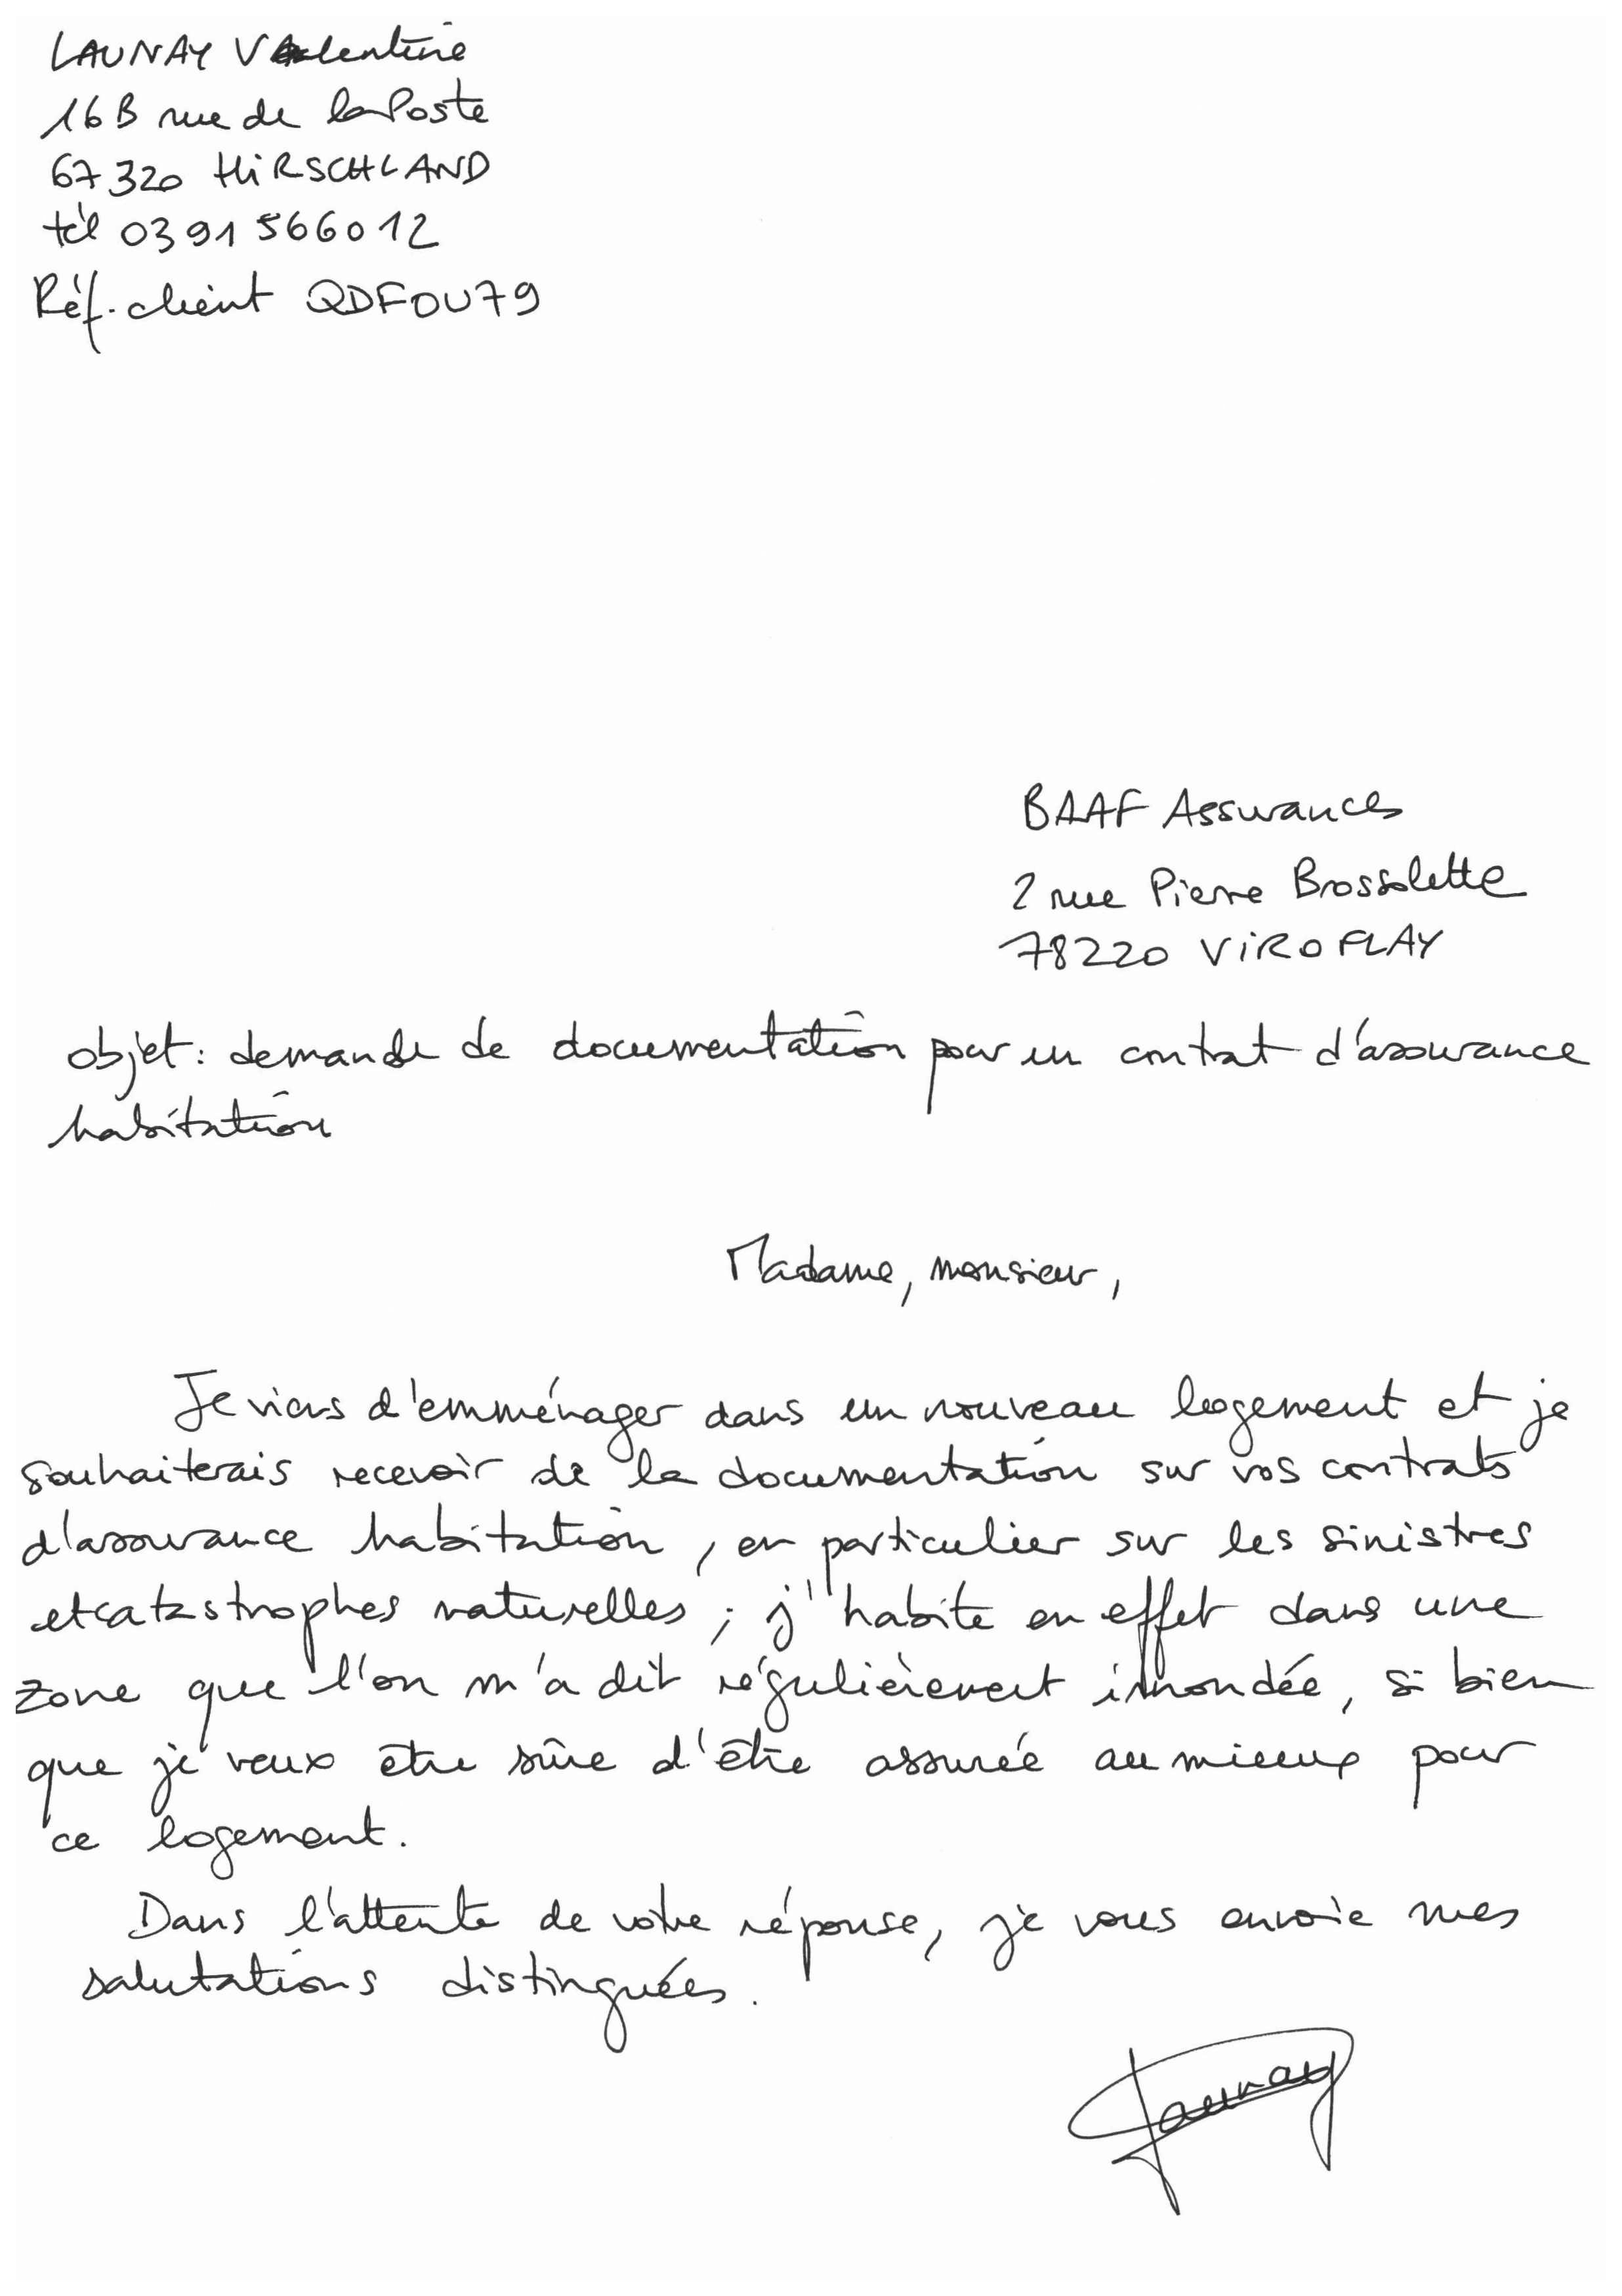 LAUNAY Valentine
16B rue de la Poste
67320 HiRSCHLAND
tél 0391566012
Réf. client QDFOU79
BAAF Assurances
2 rue Pierre Brossolette
78220 ViROFLAY
objet: demande de documentation pour un contrat d'assurance
habitation
Madame, monsieur,
Je viens d'emménager dans un nouveau logement et je
souhaiterais recevoir de la documentation sur vos contrats
d'assurance habitation, en particulier sur les sinistres
et catastrophes naturelles ; j'habite en effet dans une
zone que l'on m'a dit régulièrement innondée, si bien
que je veux être sûre d'être assurée au mieux pour
ce logement.
Dans l'attente de votre réponse, je vous envoie mes
salutations distinguées.
Launay